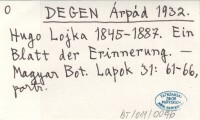 O
DEGEN Árpád 1932.
Hugo Lojka 1845-1887. Ein
Blatt der Erinnerung. —
Magyar Bot. Lapok 31: 61-66,
portr.
BT/011/0096